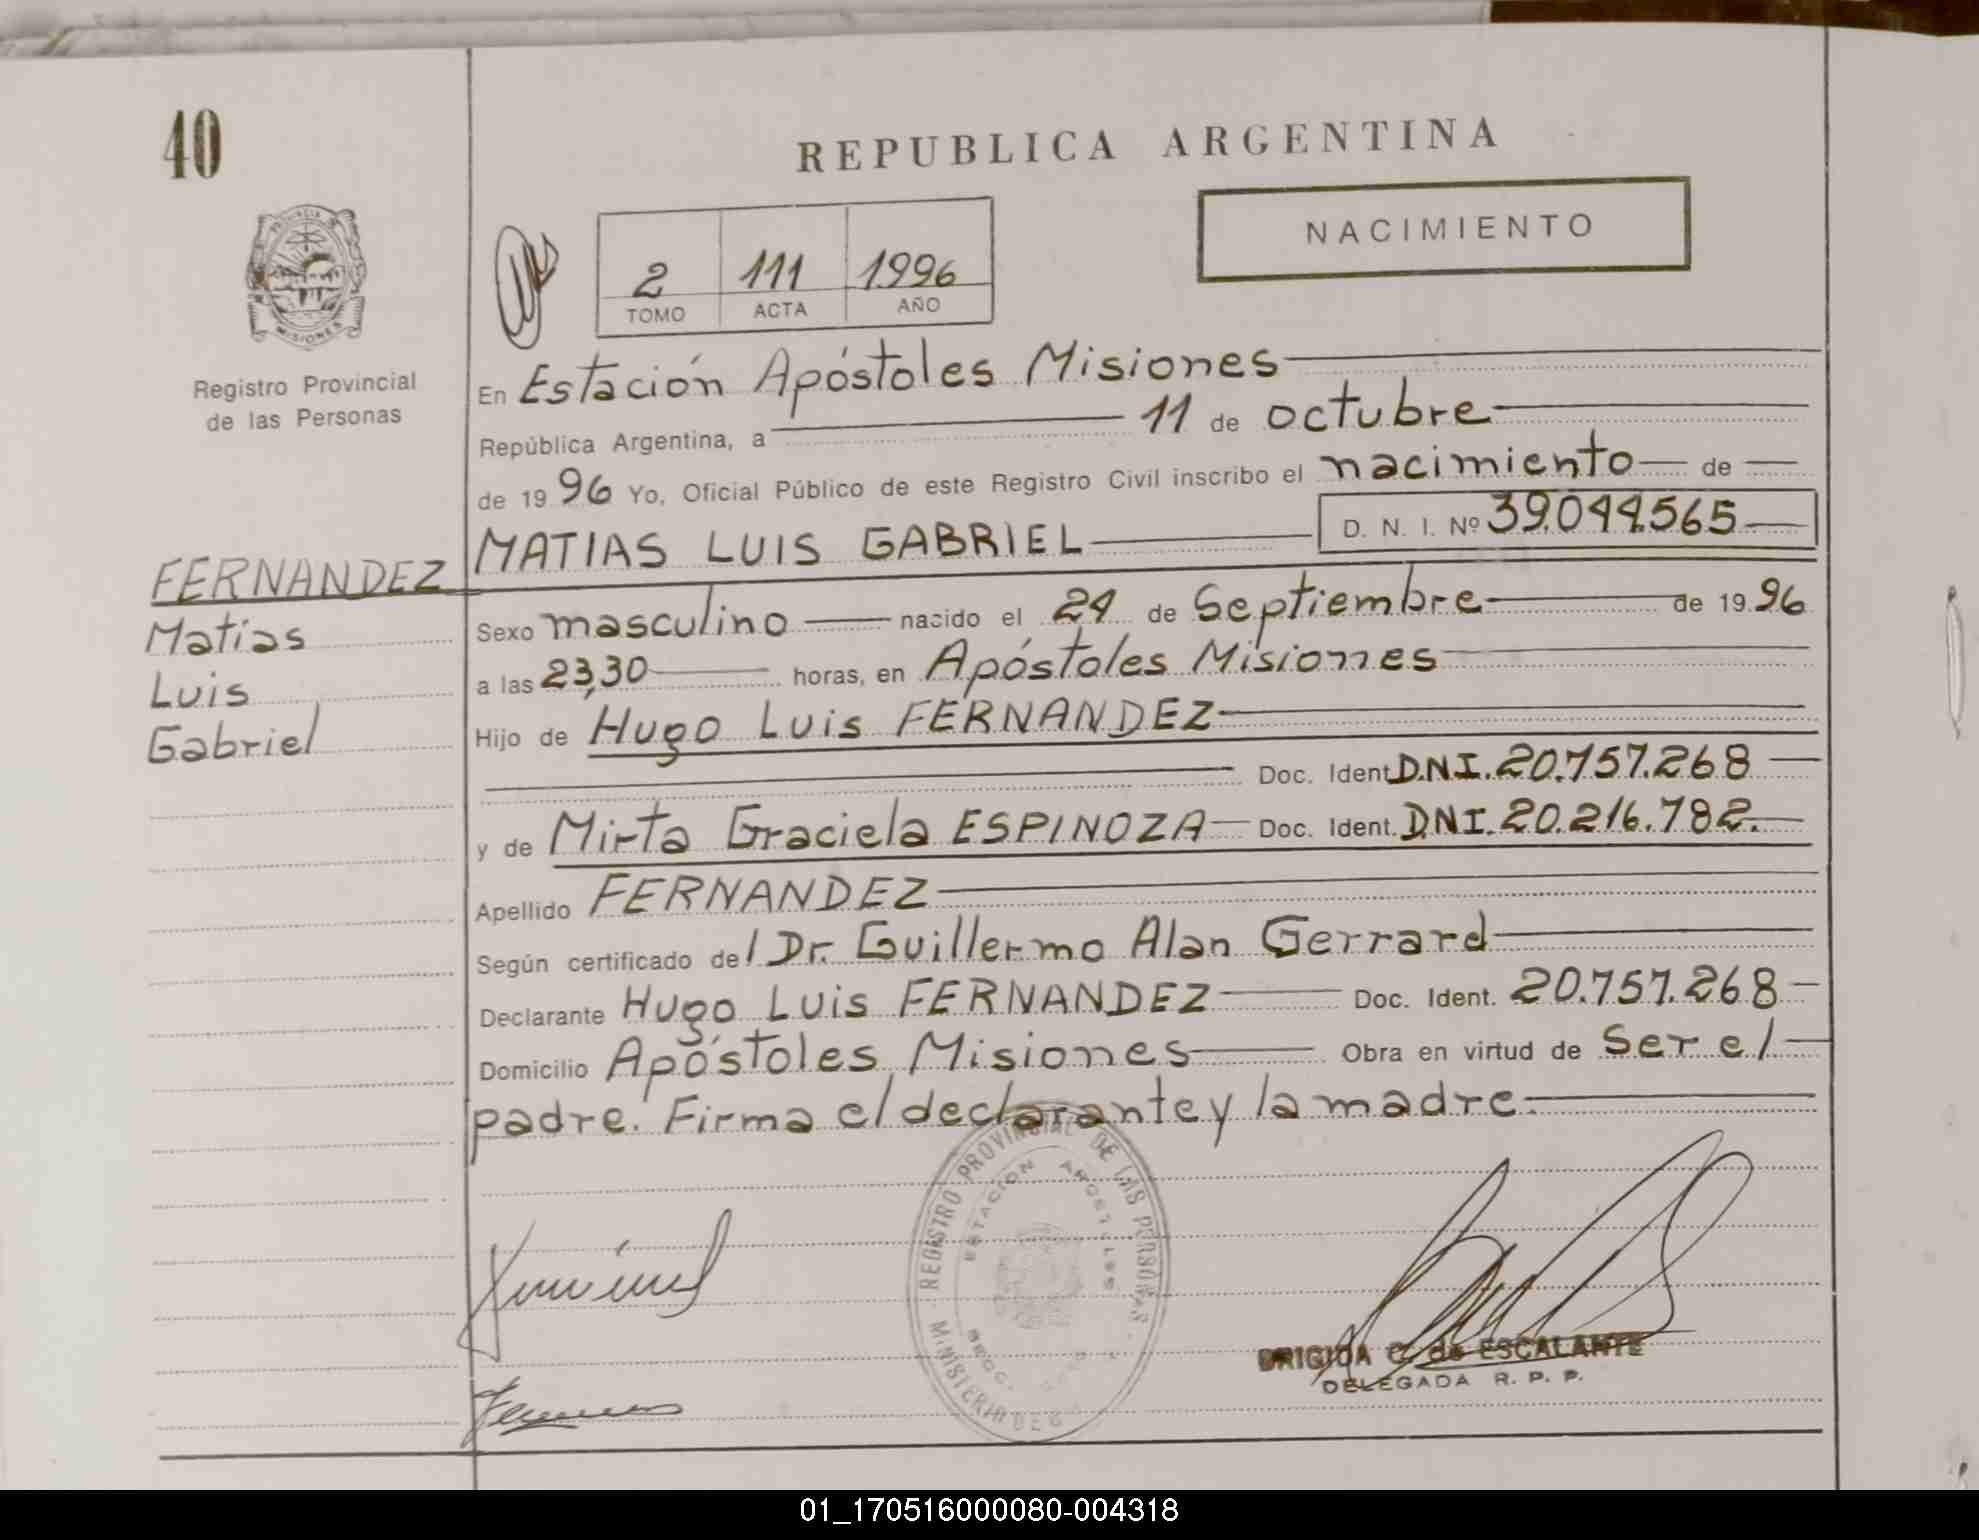 40
REPUBLICA ARGENTINA
NACIMIENTO
PROVINCIA DE MISIONES
2 111 1996
TOMO ACTA AÑO
Registro Provincial
de las Personas
En Estación Apóstoles Misiones
República Argentina, a 11 de octubre
de 1996 Yo, Oficial Público de este Registro Civil inscribo el nacimiento de
MATIAS LUIS GABRIEL D. N. I. Nº 39.044.565
FERNANDEZ
Matias
Luis
Gabriel
Sexo masculino nacido el 24 de Septiembre de 1996
a las 23,30 horas, en Apóstoles Misiones
Hijo de Hugo Luis FERNANDEZ
Doc. Ident. D.N.I. 20.757.268
y de Mirta Graciela ESPINOZA Doc. Ident. D.N.I. 20.216.782.
Apellido FERNANDEZ
Según certificado del Dr. Guillermo Alan Gerrard
Declarante Hugo Luis FERNANDEZ Doc. Ident. 20.757.268
Domicilio Apóstoles, Misiones Obra en virtud de Ser el
padre. Firma el declarante y la madre.
REGISTRO PROVINCIAL DE LAS PERSONAS
ESTACION APOSTOLES
BRIGIDA C. de ESCALANTE
DELEGADA R. P. P.
01_170516000080-004318